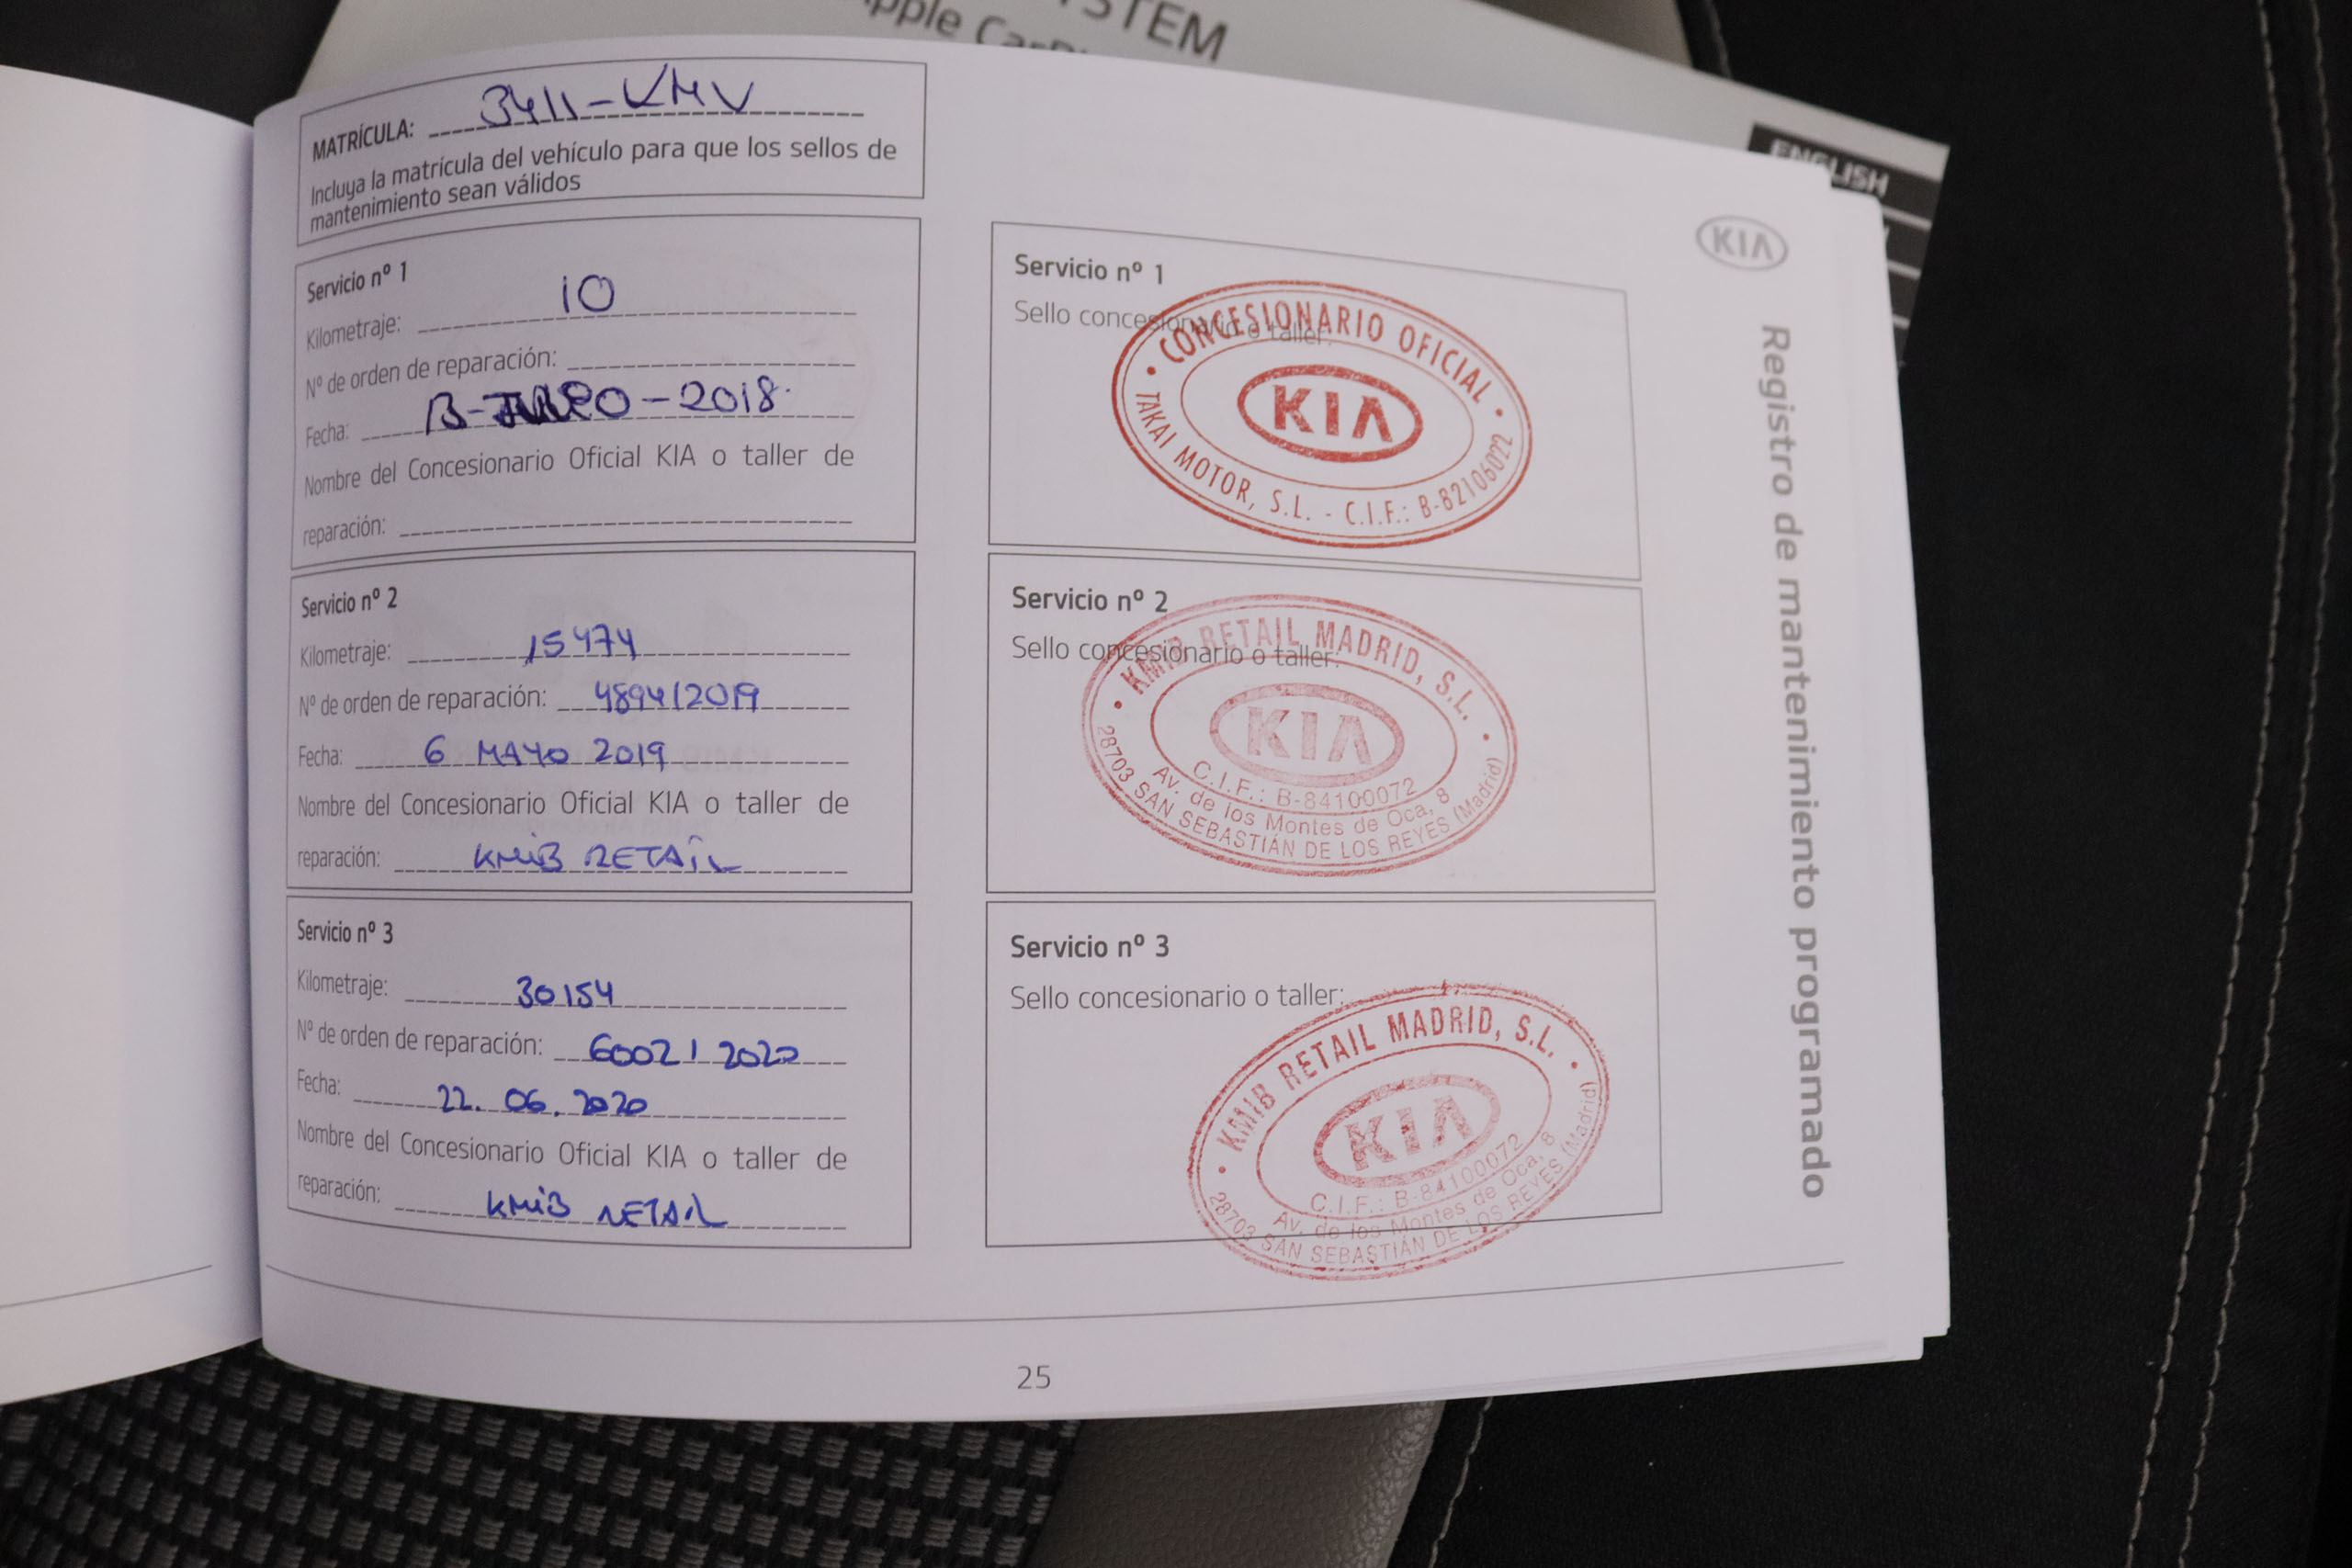 STEM
pple CarP
ENGLISH
MATRÍCULA: 3411-KMV
Incluya la matrícula del vehículo para que los sellos de
mantenimiento sean válidos
Servicio nº 1
Kilometraje: 10
Nº de orden de reparación:
Fecha: 13- -2018.
Nombre del Concesionario Oficial KIA o taller de
reparación:
Servicio nº 2
Kilometraje: 15474
Nº de orden de reparación: 4894/2019
Fecha: 6 MAYO 2019
Nombre del Concesionario Oficial KIA o taller de
reparación: KMiB RETAiL
Servicio nº 3
Kilometraje: 30154
Nº de orden de reparación: 6002 / 2020
Fecha: 22. 06. 2020
Nombre del Concesionario Oficial KIA o taller de
reparación: KMiB RETAiL
Servicio nº 1
Sello concesionario o taller:
• CONCESIONARIO OFICIAL •
KIA
TAKAI MOTOR, S.L. - C.I.F.: B-82106022
Servicio nº 2
Sello concesionario o taller:
• KMIB RETAIL MADRID, S.L. •
KIA
C.I.F.: B-84100072
Av. de los Montes de Oca, 8
28703 SAN SEBASTIÁN DE LOS REYES (Madrid)
Servicio nº 3
Sello concesionario o taller:
• KMIB RETAIL MADRID, S.L. •
KIA
C.I.F.: B-84100072
Av. de los Montes de Oca, 8
28703 SAN SEBASTIÁN DE LOS REYES (Madrid)
KIA
Registro de mantenimiento programado
25